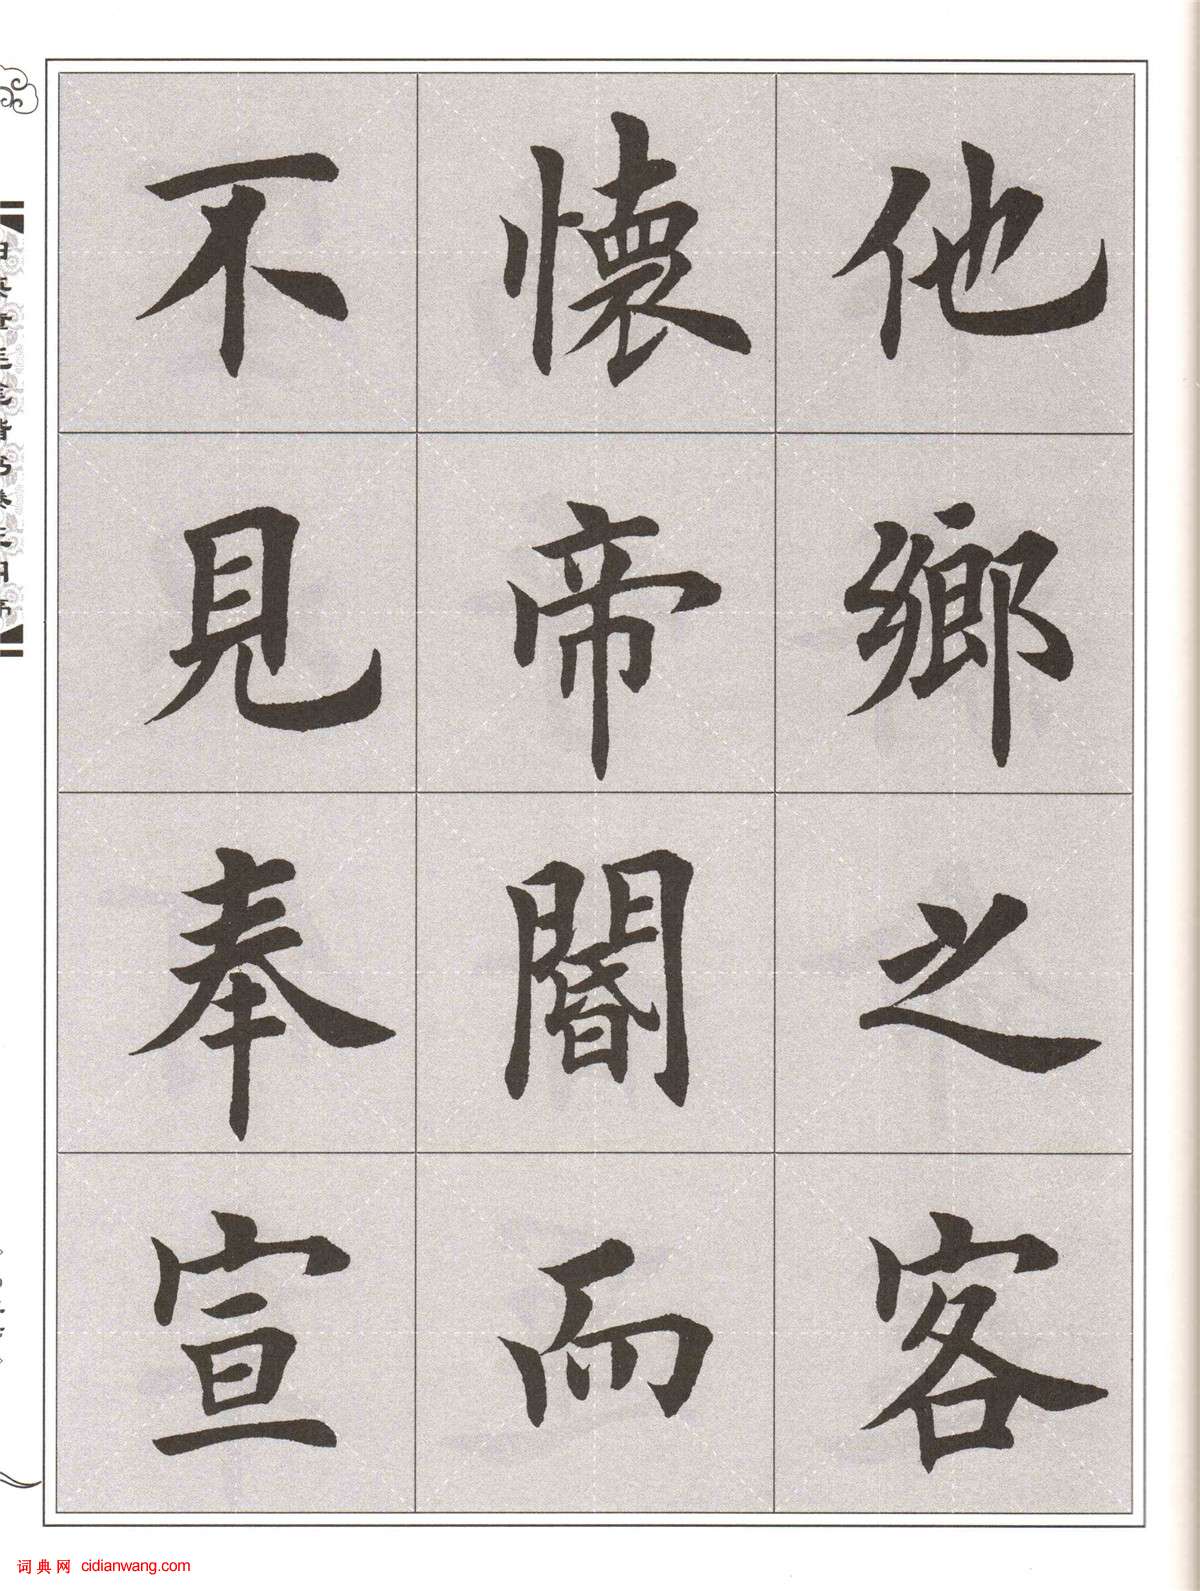 他鄉之客
懷帝閽而
不見奉宣
词典网 cidianwang.com